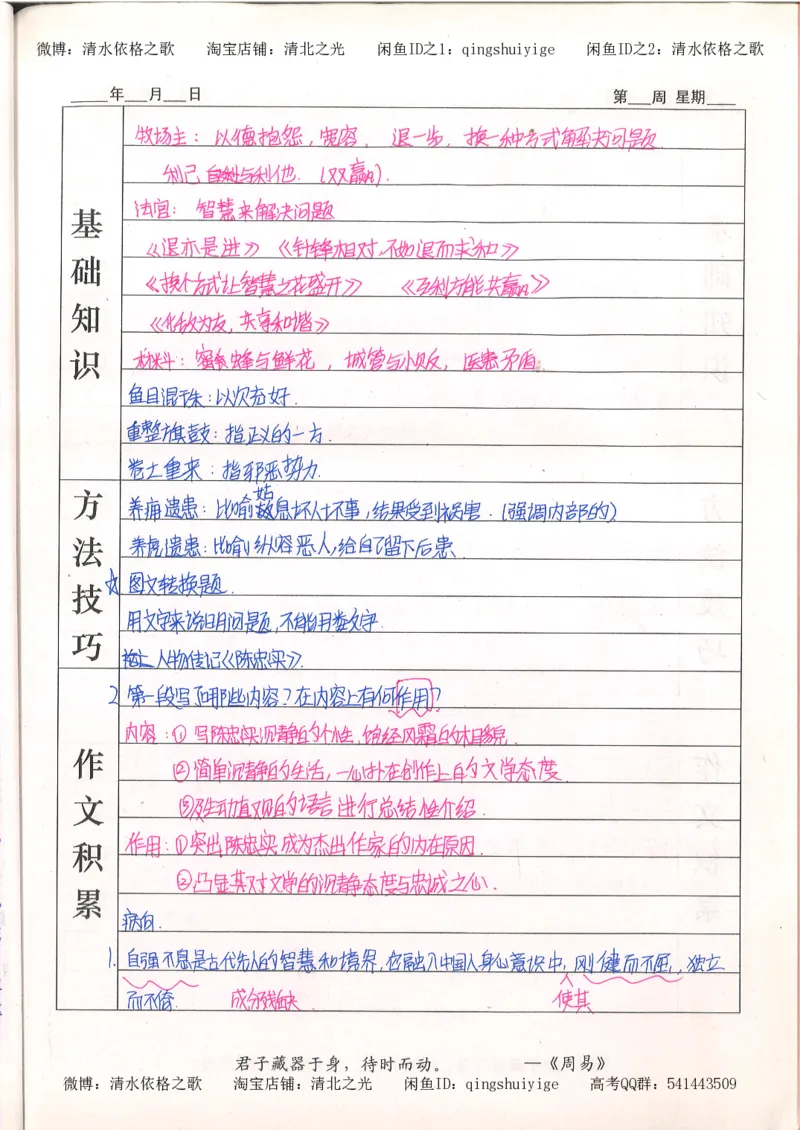 微博：清水依格之歌 淘宝店铺：清北之光 闲鱼ID之1：qingshuiyige 闲鱼ID之2：清水依格之歌
年 月 日 第 周 星期
基础知识
牧场主：以德抱怨，宽容，退一步，换一种方式解决问题
利己 自利与利他.（双赢）.
法官：智慧来解决问题
《退亦是进》《针锋相对，不如退而求和》
《换个方式让智慧之花盛开》《互利方能共赢》
《化敌为友，共享和谐》
材料：蜜蜂与鲜花，城管与小贩，医患矛盾.
鱼目混珠：以次充好.
重整旗鼓：指正义的一方.
卷土重来：指邪恶势力.
方法技巧
养痈遗患：比喻姑息坏人坏事，结果受到祸害.（强调内部的）
养虎遗患：比喻纵容恶人，给自己留下后患.
☆图文转换题.
用文字来说明问题，不能用数字.
人物传记《陈忠实》.
作文积累
2.第一段写了哪些内容？在内容上有何作用？
内容：①写陈忠实沉静的个性，饱经风霜的相貌.
②简单沉静的生活，一心扑在创作上的文学态度.
③及生动直观的语言进行总结性介绍.
作用：①突出陈忠实成为杰出作家的内在原因.
②凸显其对文学的沉静态度与忠诚之心.
病句.
1.自强不息是古代先人的智慧和境界，它融入中国人身心意识中，刚健而不屈，独立
而不倚. 成分残缺 使其
君子藏器于身，待时而动。 —《周易》
微博：清水依格之歌 淘宝店铺：清北之光 闲鱼ID：qingshuiyige 高考QQ群：541443509